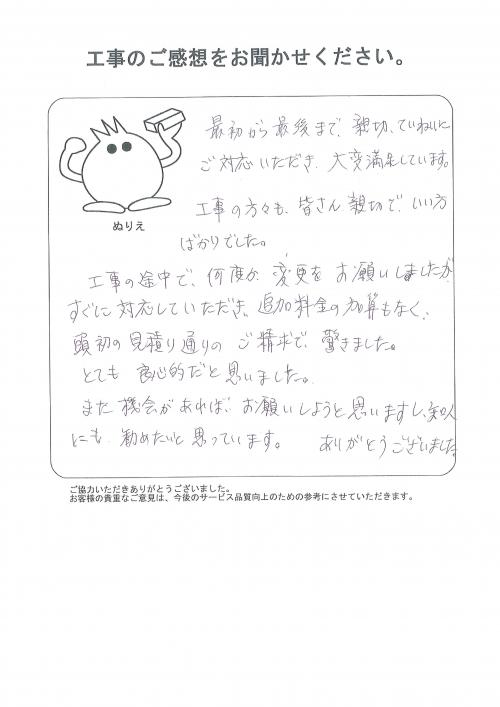 工事のご感想をお聞かせください。
最初から最後まで、親切、ていねいに
ご対応いただき、大変満足しています。
工事の方々も、皆さん親切で、いい方
ばかりでした。
ぬりえ
工事の途中で、何度か変更をお願いしましたが、
すぐに対応していただき、追加料金の加算もなく、
頭初の見積り通りのご精求で、驚きました。
とても良心的だと思いました。
また機会があれば、お願いしようと思いますし、知人
にも勧めたいと思っています。 ありがとうございました
ご協力いただきありがとうございました。
お客様の貴重なご意見は、今後のサービス品質向上のための参考にさせていただきます。